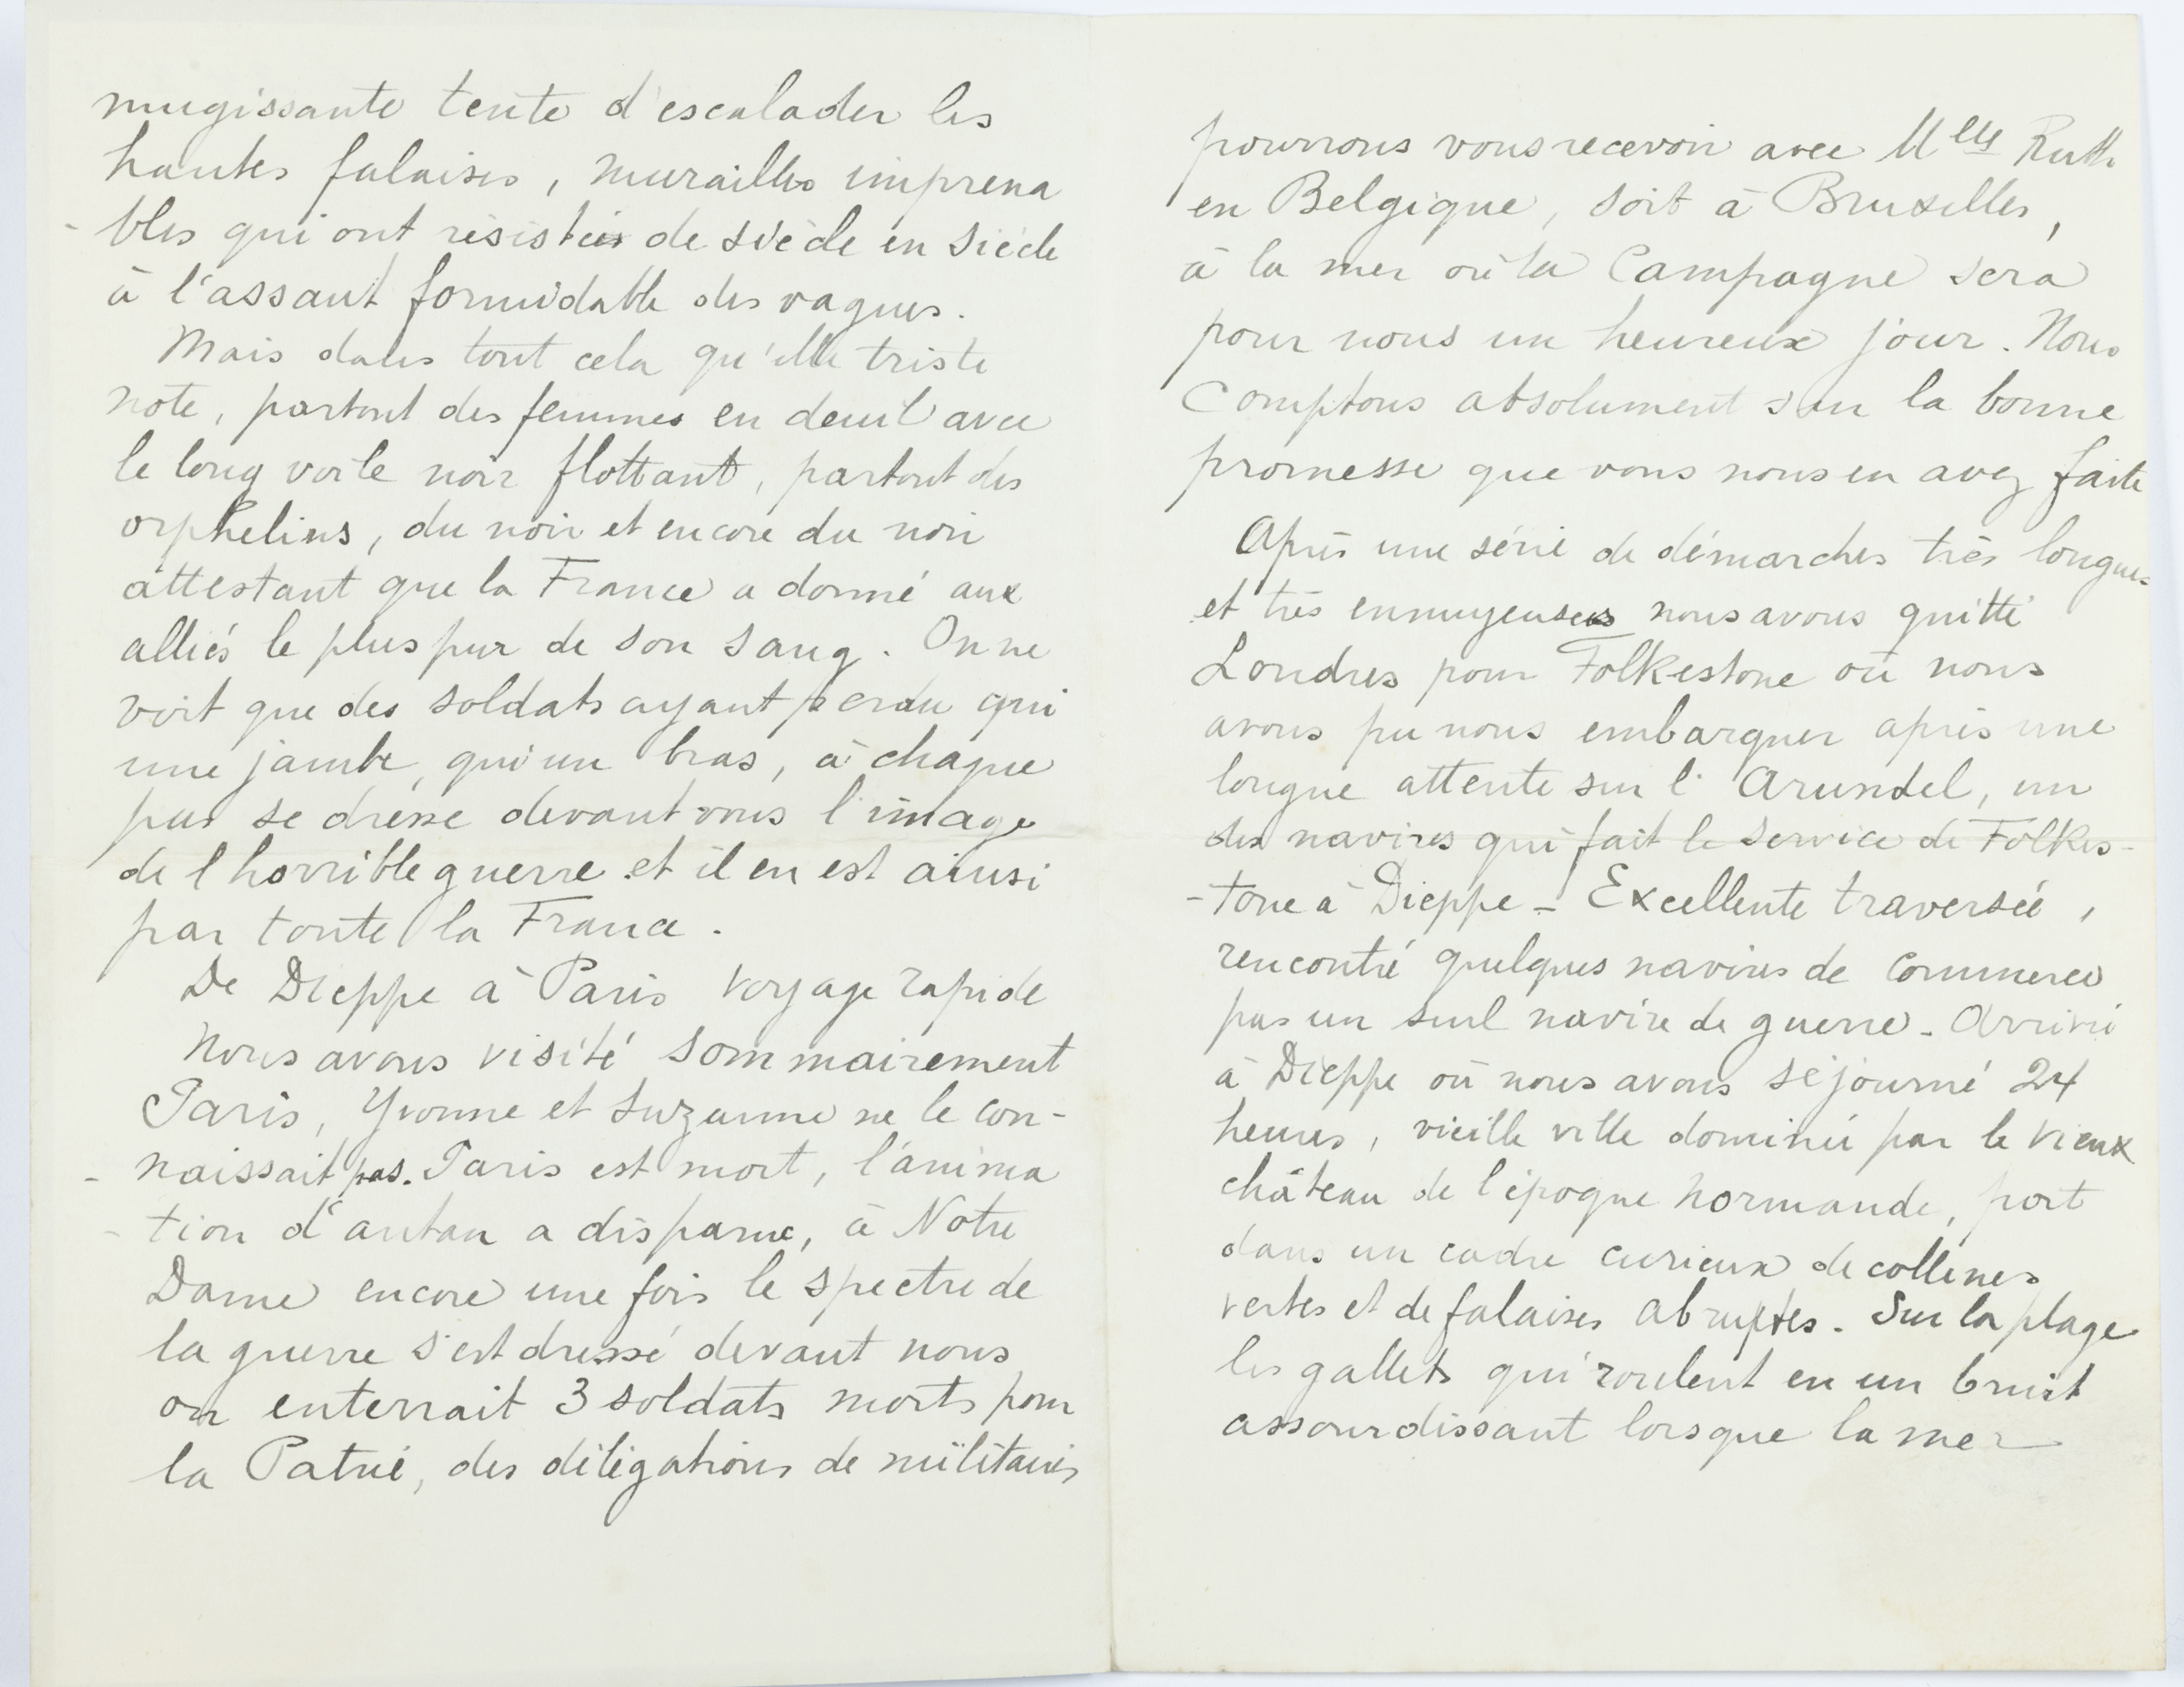 mugissante tente d'escalader les
hautes falaises, murailles imprena
- bles qui ont résistées de siècle en siècle
à l'assaut formidable des vagues.
Mais dans tout cela qu'elle triste
note, partout des femmes en deuil avec
le long voile noir flottant, partout des
orphelins, du noir et encore du noir
attestant que la France a donné aux
alliés le plus pur de son sang. On ne
voit que des soldats ayant perdu qui
une jambe, qui un bras, à chaque
pas se dresse devant vous l'image
de l horrible guerre et il en est ainsi
par toute la France.
De Dieppe à Paris voyage rapide
Nous avons visité sommairement
Paris, Yvonne et Suzanne ne le con-
- naissait pas. Paris est mort, l'anima
- tion d'antan a disparue, à Notre
Dame encore une fois le spectre de
la guerre s'est dressé devant nous
on enterrait 3 soldats morts pour
la Patrie, des délégations de militaires
pourrons vous recevoir avec Mlle Ruth
en Belgique, soit à Bruxelles,
à la mer où la Campagne sera
pour nous un heureux jour. Nous
Comptons absolument sur la bonne
promesse que vous nous en avez faite
Après une série de démarches très longues
et très ennuyeuses nous avons quitté
Londres pour Folkestone où nous
avons pu nous embarquer après une
longue attente sur l' Arundel, un
des navires qui fait le service de Folkes-
- tone à Dieppe - Excellente traversée,
rencontré quelques navires de commerce
pas un seul navire de guerre - Arrivé
à Dieppe où nous avons séjourné 24
heures, vieille ville dominée par le vieux
château de l'époque normande, port
dans un cadre curieux de collines
vertes et de falaises abruptes. Sur la plage
les gallets qui roulent en un bruit
assourdissant lorsque la mer